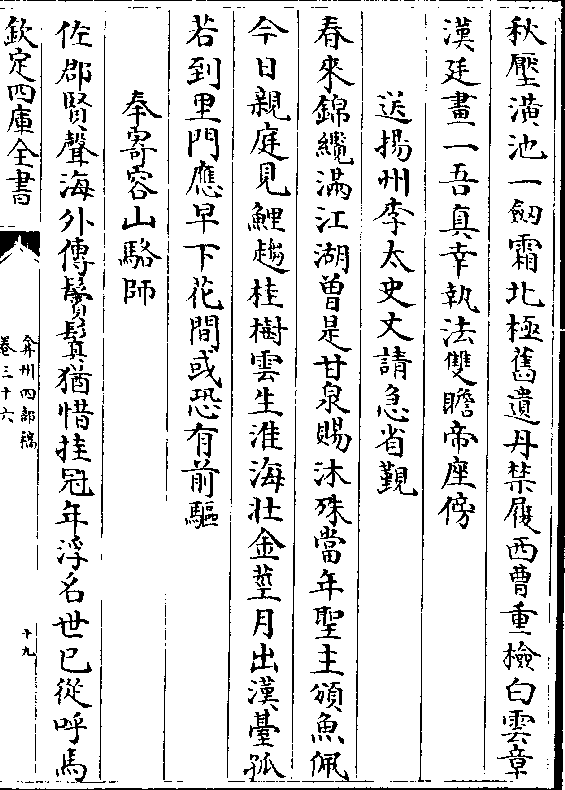 秋壓潢池一劒霜北極舊遺丹禁履西曹重檢白雲章
漢廷畫一吾真幸執法雙瞻帝座傍
送揚州李太史丈請急省覲
春來錦纜滿江湖曽是甘泉賜沐殊當年聖主頒魚佩
今日親庭見鯉趨桂樹雲生淮海壯金莖月出漢臺孤
若到里門應早下花間或恐有前驅
奉寄容山駱師
佐郡賢聲海外傳鬢鬒猶惜挂冠年浮名世已從呼馬
欽定四庫全書
弇州四部稿
卷三十六
十九